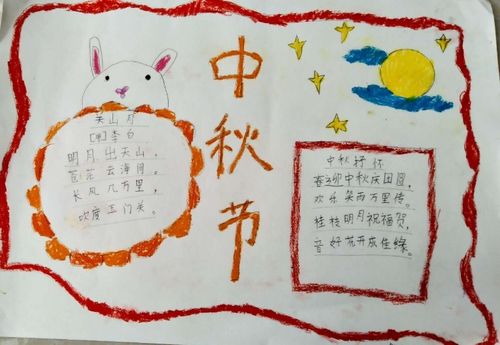 中秋节
关山月
[唐]李白
明月出天山,
苍茫云海间。
长风几万里,
吹度玉门关。
中秋抒怀
喜迎中秋庆团圆,
欢乐笑雨万里传。
桂枝明月祝福贺,
音好花开成佳缘。